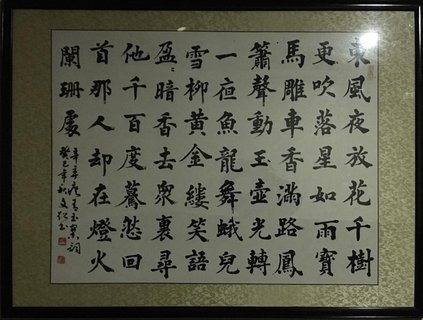 東風夜放花千樹
更吹落星如雨寶
馬雕車香滿路鳳
簫聲動玉壺光轉
一亱魚龍舞蛾兒
雪柳黃金縷笑語
盈〻暗香去衆裏尋
他千百度驀然回
首那人却在燈火
闌珊處
辛弃疾青玉案詞
癸巳年秋文書